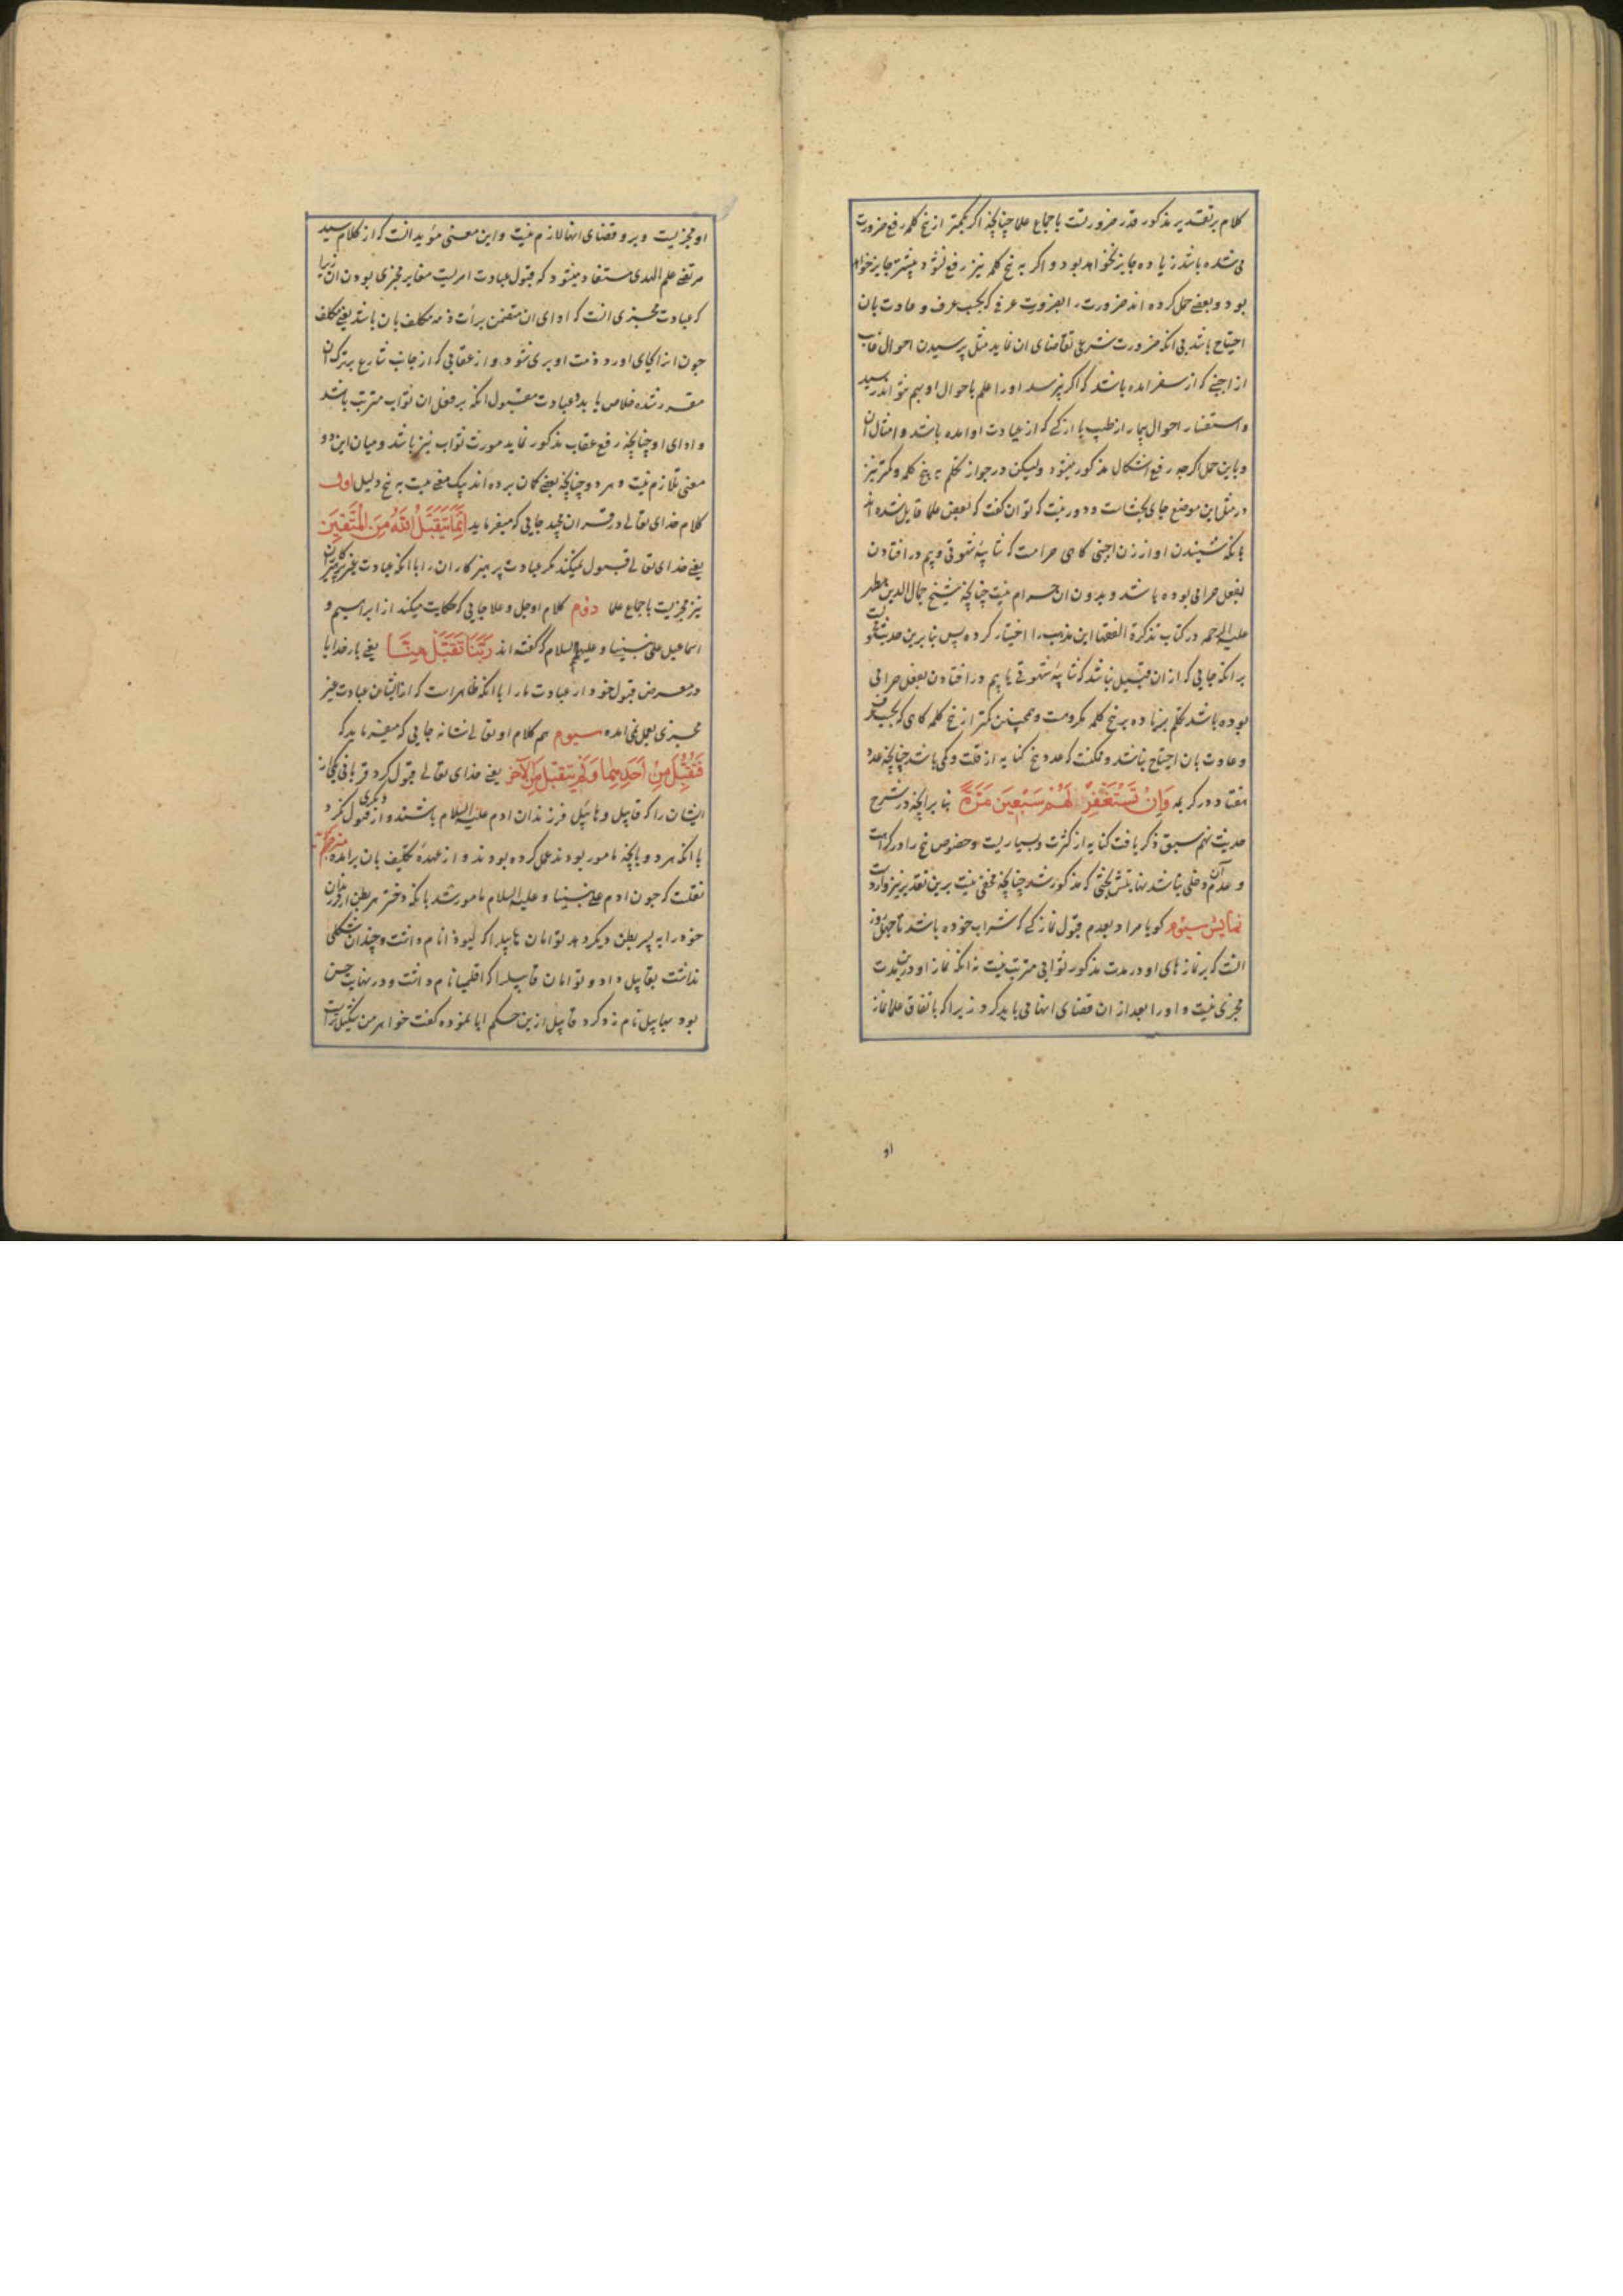 کلام بر تقدیر مذکور قدر ضرورتست باجماع علما چنانچه اکر بکمتر از پنج کلمه رفع ضرورت
می شده باشد زیاده جایز نخواهد بود و اکر به پنج کلمه نیز رفع نشود بیشتر جایز خواهد
بود و بعضی حمل کرده اند ضرورت را بضرورت عرفی که بحسب عرف و عادت بان
احتیاج باشد بی انکه ضرورت شرعی تقاضای ان نماید مثل پرسیدن احوال غایب
از اجنبی که از سفر امده باشد که اکر نپرسد او را علم باحوال او بهم نتواند رسید
و استفسار احوال بیمار از طبیب یا از کسی که از عیادت او امده باشد و امثال آن
و باین حمل اکرچه رفع اشکال مذکور میشود ولیکن در جواز تکلم به پنج کلمه و کمتر نیز
در مثل این موضع جای بحث است و دور نیست که توان کفت که بعض علما قایل شده اند
بانکه شنیدن اواز زن اجنبی کاهی حرامست که شایبه شهوتی و بیم در افتادن
بفعل حرامی بوده باشد و بدون ان حرام نیست چنانچه شیخ جمال الدین مطهر
علیه الرحمه در کتاب تذکرة الفقها این مذهب را اختیار کرده پس بنا برین حدیث
بر انکه جایی که از ان قبیل نباشد که شایبه شهوتی یا بیم در افتادن بفعل حرامی
بوده باشد تکلم بزیاده بر پنج کلمه مکروهست و همچنین کمتر از پنج کلمه کاهی که بحسب عرف
و عادت بان احتیاج نباشد و ممکنست که عدد پنج کنایه از قلت و کمی باشد چنانچه عدد
هفتاد در کریمه وَاِنْ تَسْتَغْفِرْ لَهُمْ سَبْعِینَ مَرَّةً بنا بر انچه در شرح
حدیث نهم سبق ذکر یافت کنایه از کثرت و بسیاریست و خصوص پنج را در کراهت
و عدم آن دخلی نباشد نهایتش بحثی که مذکور شد چنانچه مخفی نیست برین تقدیر نیز واردست
نمایش سیوم کویا مراد بعدم قبول نماز کسی که شراب خورده باشد تا چهل روز
انست که بر نمازهای او در مدت مذکور ثوابی مترتب نیست نه انکه نماز او درین مدت
مجزی نیست و او را بعد از ان قضای انها می باید کرد زیرا که باتفاق علما نماز
او
او مجزیست و برو قضای انها لازم نیست و این معنی مؤید انست که از کلام سید
مرتضی علم الهدی مستفاد میشود که قبول عبادت امریست مغایر مجزی بودن ان زیرا
که عبادت مجزی انست که ادای ان متضمن برأت ذمه مکلف بان باشد یعنی مکلف
چون انرا بجای اورد ذمت او بری شود و از عقابی که از جانب شارع بر ترک ان
مقرر شده خلاص یابد و عبادت مقبول انکه بر فعل ان ثواب مترتب باشد
و ادای او چنانچه رفع عقاب مذکور نماید مورث ثواب نیز باشد و میان این دو
معنی تلازم نیست و هر دو چنانچه بعضی کمان برده اند بیک معنی نیست به پنج دلیل اول
کلام خدای تعالی در قران مجید جایی که میفرماید اِنَّمَا یَتَقَبَّلُ اللّٰهُ مِنَ الْمُتَّقِینَ
یعنی خدای تعالی قبول نمیکند مکر عبادت پرهیزکاران را با انکه عبادت غیر پرهیزکاران
نیز مجزیست باجماع علما دوم کلام او جل و علا جایی که حکایت میکند از ابراهیم و
اسماعیل علی نبینا و علیهم السلام که کفته اند رَبَّنَا تَقَبَّلْ مِنَّا یعنی بار خدایا
در معرض قبول خود ار عبادت ما را با انکه ظاهر است که از ایشان عبادت غیر
مجزی بعمل نمی امده سیوم هم کلام او تعالی شانه جایی که میفرماید که
فَتُقُبِّلَ مِنْ اَحَدِهِمَا وَلَمْ یُتَقَبَّلْ مِنَ الْآخَرِ یعنی خدای تعالی قبول کرد قربانی یکی از
ایشان را که قابیل و هابیل فرزندان ادم علیه السلام باشند و از دیکری قبول نکرد
با انکه هر دو بانچه مامور بودند عمل کرده بودند و از عهدۀ تکلیف بان برامده مترجم کوید
نقلست که چون ادم علی نبینا و علیه السلام مامور شد بانکه دختر هر بطن از فرزندان
خود را به پسر بطن دیکر دهد توامان هابیل را که لیوذا نام داشت و چندان شکلی
نداشت بقابیل داد و توامان قابیل را که اقلیما نام داشت و در نهایت حسن
بود بهابیل نامزد کرد قابیل ازین حکم ابا نموده کفت خواهر من شکیل تر است